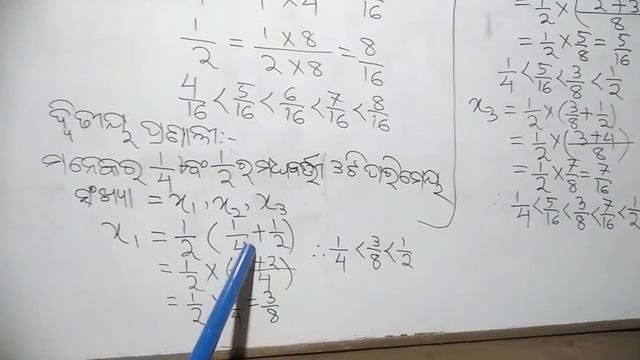 1/4 = 1×4/ = 4/16
1/2 = 1×8/2×8 = 8/16
4/16 < 5/16 < 6/16 < 7/16 < 8/16
ଦ୍ୱିତୀୟ ପ୍ରଣାଳୀ:-
ମନେକର 1/4 ଏବଂ 1/2 ର ମଧ୍ୟବର୍ତ୍ତୀ 3ଟି ପରିମେୟ
ସଂଖ୍ୟା = x₁, x₂, x₃
x₁ = 1/2 (1/4 + 1/2) ∴ 1/4 < 3/8 < 1/2
= 1/2 × ( +2/4)
= 1/2 × /4 = 3/8
= 1/2 × (2+3/8)
= 1/2 × 5/8 = 5/16
1/4 < 5/16 < 3/8 < 1/2
x₃ = 1/2 × (3/8 + 1/2)
= 1/2 × (3+4/8)
= 1/2 × 7/8 = 7/16
∴ 1/4 < 5/16 < 3/8 < 7/16 < 1/2